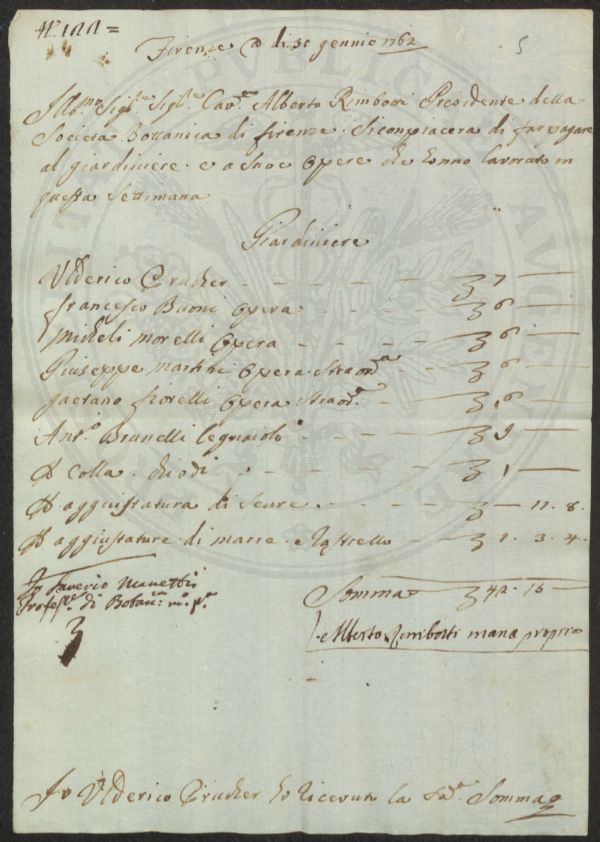 N.° 122 =
5
Firenze a di 30 gennio 1762
Ill.mo Sig.re Sig.re Cav.re Alberto Rimbotti Presidente della
Società Bottanica di firenze. Si compiacera di far pagare
al giardiniere. e a suoe Opere che hanno lavorato in
questa Settimana
Giardiniere
Vlderico Prucher - - - - 7 —
francesco Buoni Opera - - - 6 —
Micheli morelli Opera - - - 6 —
Giuseppe martini Opera Straord.a - 6 —
gaetano fiorelli Opera Straord.a - 6 —
Ant.o Brunelli legnaiolo - - - 9 —
P colla. chiodi - - - 1 —
P aggiustatura di Scure - - - — 11. 8.
P aggiustature di marre e Rastrello - - 1. 3. 4.
Saverio Manetti
Profess.e di Botan.ca m. p.a
Somma 42. 15 —
Alberto Rimbotti mano propria
Io Vlderico Prucher ho ricevuto la Sud.a Somma